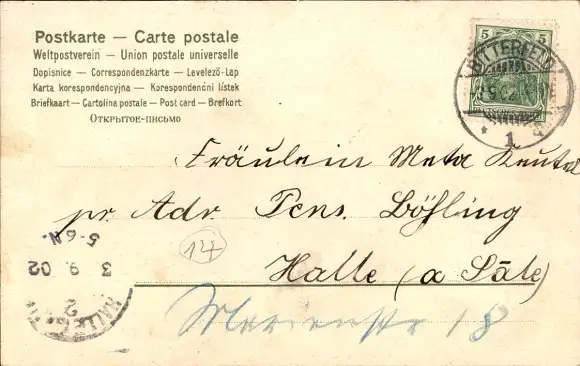 Postkarte — Carte postale
Weltpostverein — Union postale universelle
Dopisnice — Correspondenzkarte — Levelező-Lap
Karta korespondencyjna — Korespondenční lístek
Briefkaart — Cartolina postale — Post card — Brefkort
Открытое-письмо
5 5
BITTERFELD
1
Fräulein Meta
pr. Adr. Pens. Böhling
14
Halle (a Sale)
Marienstr 18
5-6N.
3 9 02
HALLE
2